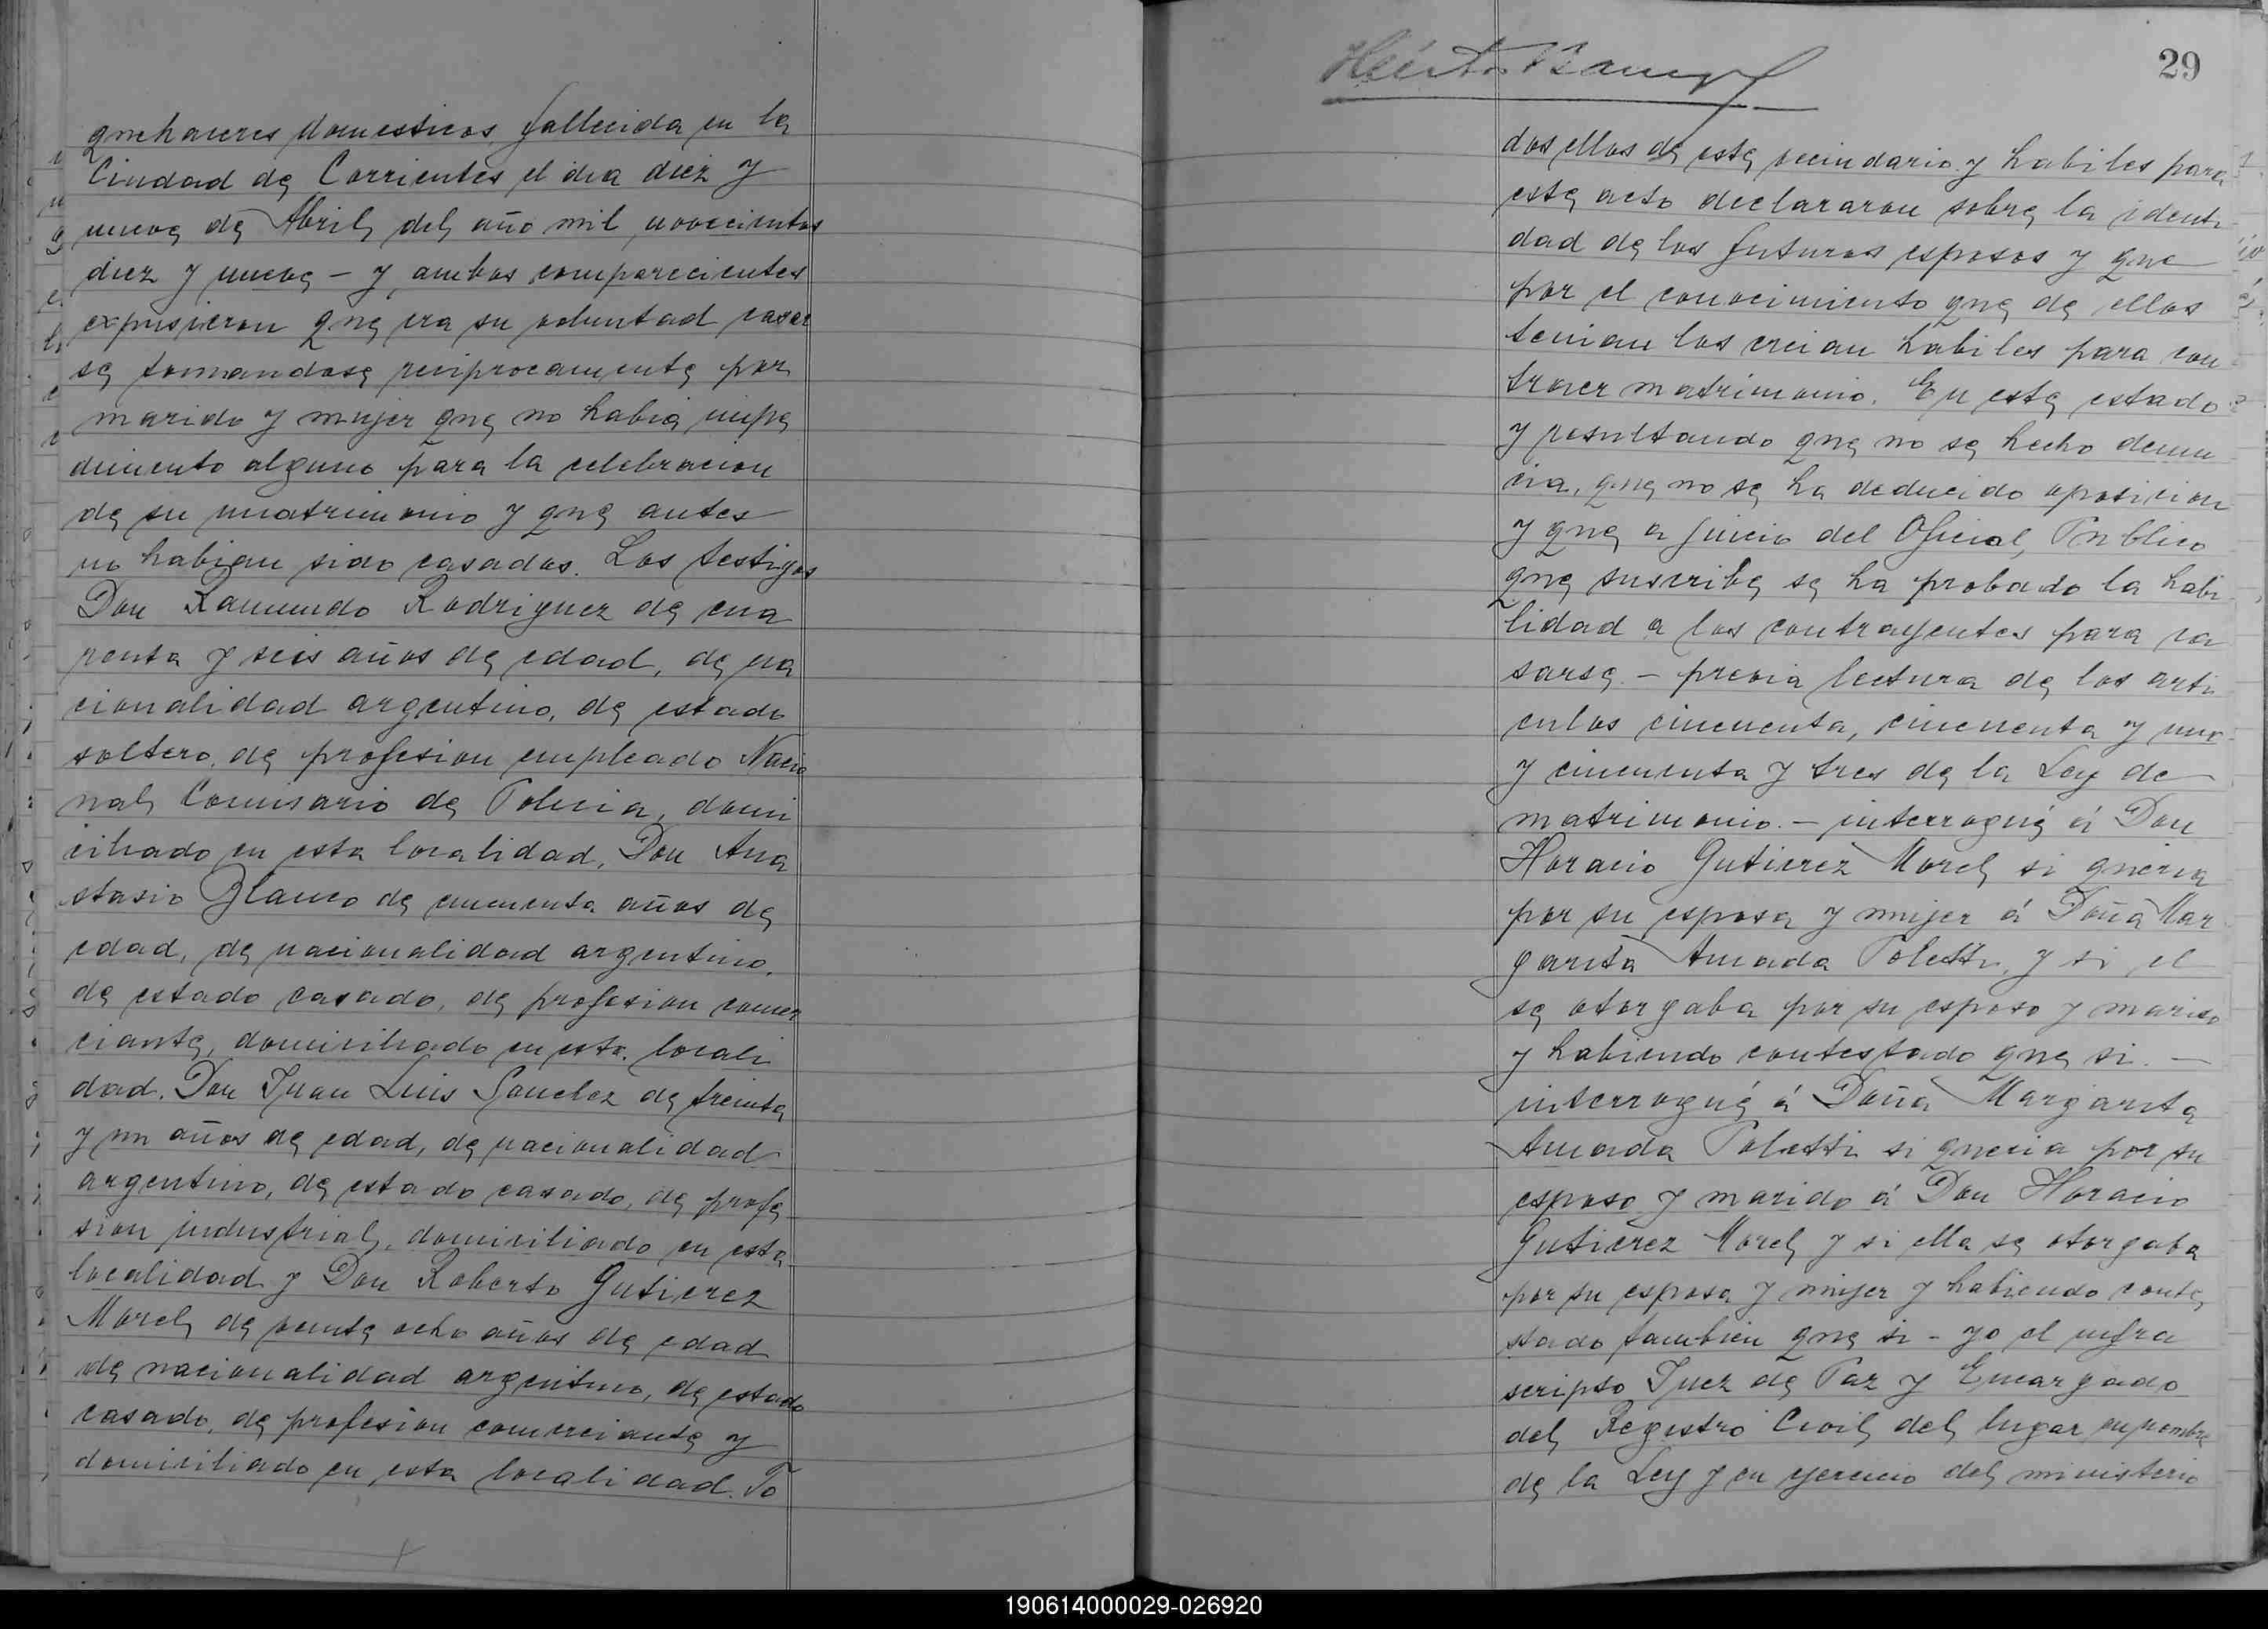 quehaceres domesticos, fallecida en la
Ciudad de Corrientes el dia diez y
nueve de Abril del año mil novecientos
diez y nueve – y ambos comparecientes
expusieron que era su voluntad casar
se tomandose reciprocamente por
marido y mujer que no habia impe
dimento alguno para la celebracion
de su matrimonio y que antes
no habian sido casados. Los testigos
Don Raimundo Rodriguez de cua
renta y seis años de edad, de na
cionalidad argentino, de estado
soltero, de profesion empleado Nacio
nal Comisario de Policia, domi
ciliado en esta localidad, Don Ana
stasio Blanco de cincuenta años de
edad, de nacionalidad argentino,
de estado casado, de profesion comer
ciante, domiciliado en esta locali
dad. Don Juan Luis Sanchez de treinta
y un años de edad, de nacionalidad
argentino, de estado casado, de profe
sion industrial, domiciliado en esta
localidad y Don Roberto Gutierrez
Morel de veinte ocho años de edad
de nacionalidad argentino, de estado
casado, de profesion comerciante y
domiciliado en esta localidad. To
29
dos ellos de este vecindario y habiles para
este acto declararon sobre la identi
dad de los futuros esposos y que
por el conocimiento que de ellos
tenian los creian habiles para con
traer matrimonio. En este estado
y resultando que no se hecho denun
cia, que no se ha deducido oposicion
y que a juicio del Oficial Publico
que suscribe se ha probado la habi
lidad a los contrayentes para ca
sarse – previa lectura de los arti
culos cincuenta, cincuenta y uno
y cincuenta y tres de la Ley de
matrimonio. – interrogué á Don
Horacio Gutierrez Morel si queria
por su esposa y mujer á Doña Mar
garita Amada Poletti, y si el
se otorgaba por su esposo y marido
y habiendo contestado que si. –
interrogué á Doña Margarita
Amada Poletti si queria por su
esposo y marido á Don Horacio
Gutierrez Morel y si ella se otorgaba
por su esposa y mujer y habiendo conte
stado tambien que si – yo el infra
scripto Juez de Paz y Encargado
del Registro Civil del lugar, en nombre
de la Ley y en ejercicio del ministerio
190614000029-026920